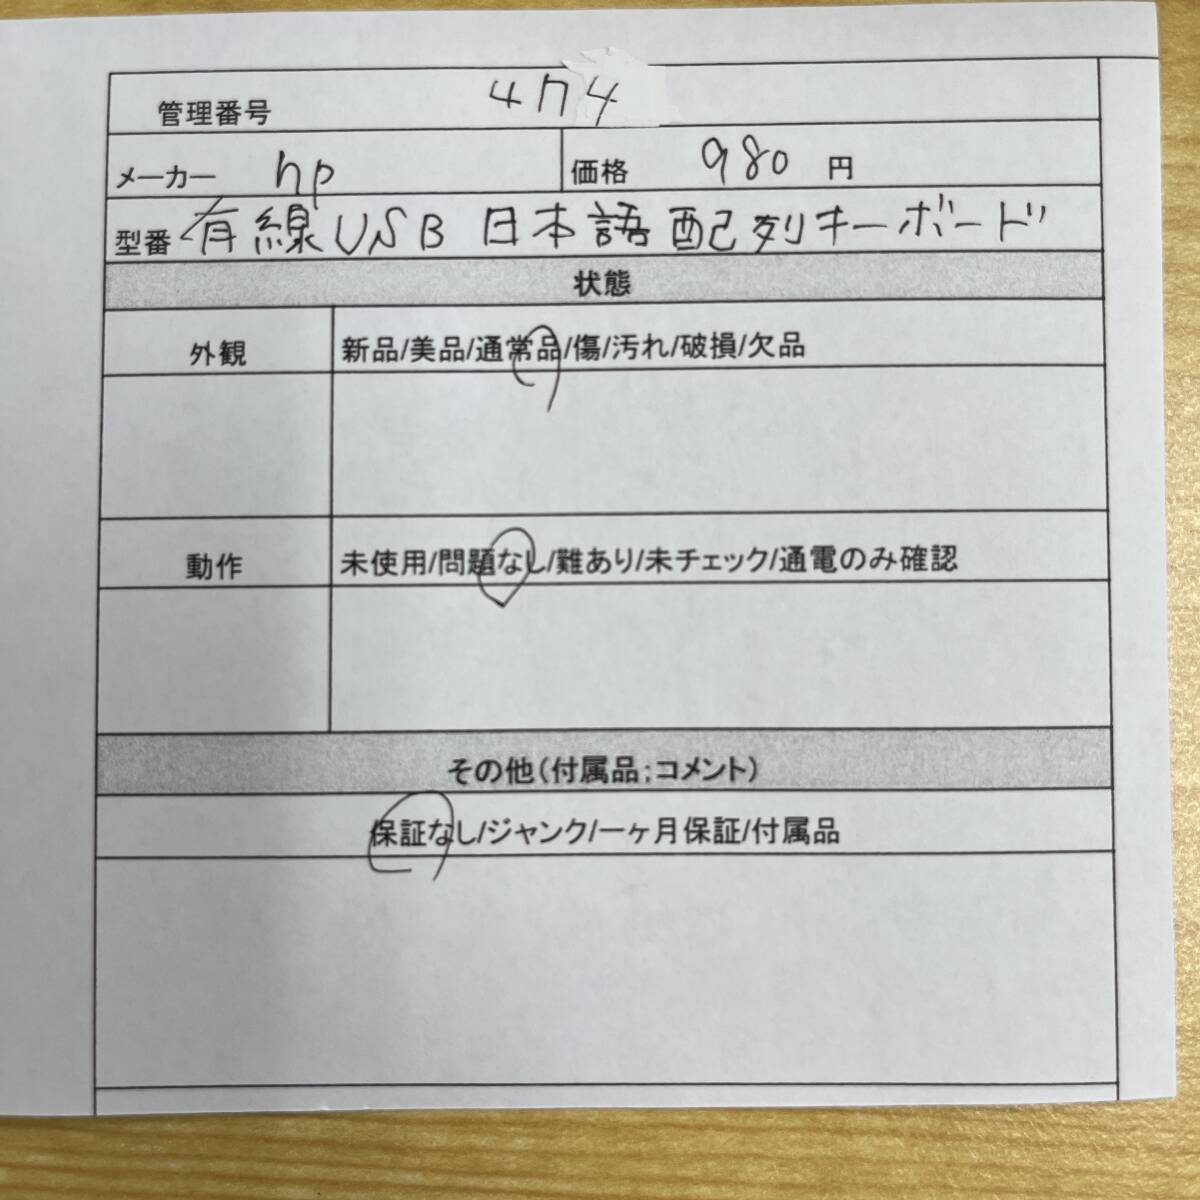 管理番号 474
メーカー hp 価格 980 円
型番 有線USB 日本語配列キーボード
状態
外観 新品/美品/通常品/傷/汚れ/破損/欠品
動作 未使用/問題なし/難あり/未チェック/通電のみ確認
その他(付属品;コメント)
保証なし/ジャンク/一ヶ月保証/付属品